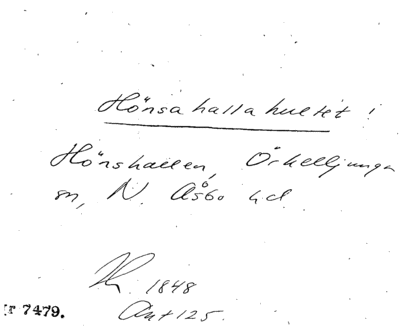 Hönsahallahultet!
Hönshallen, Örkelljunga
sn, N. Åsbo hd
1848
Ant 125.
r 7479.